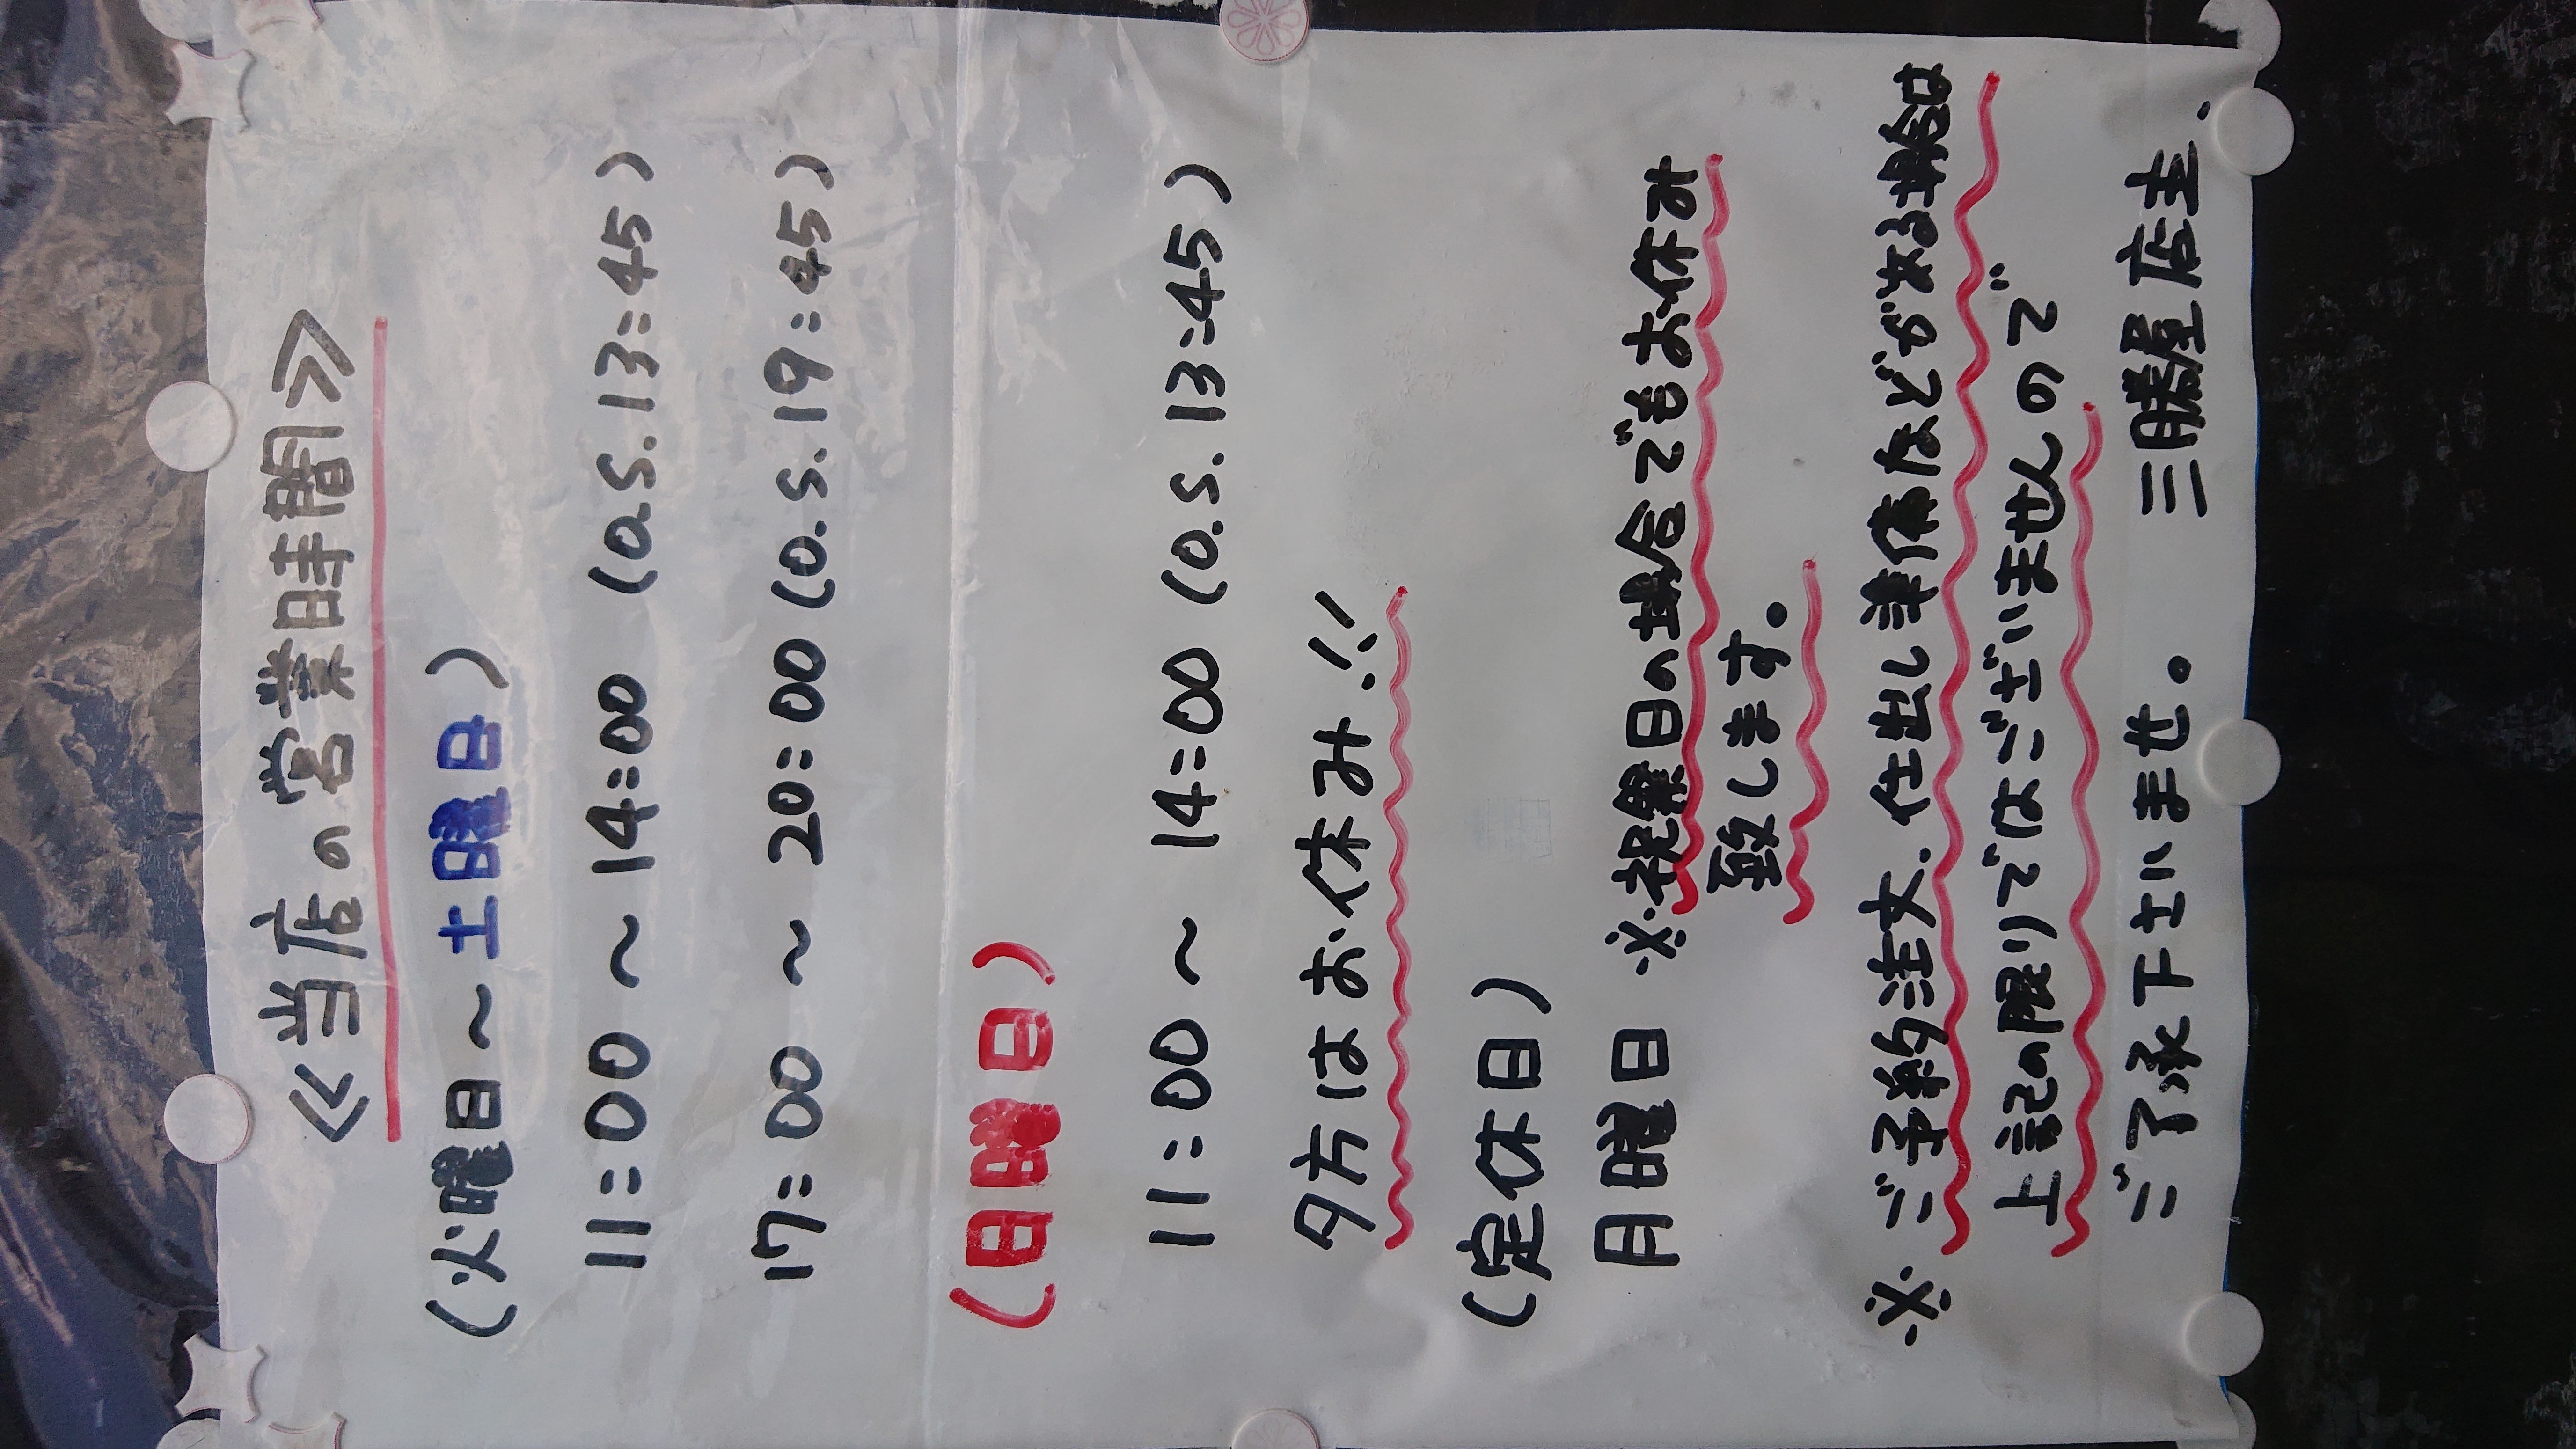 ≪当店の営業時間≫
(火曜日～土曜日)
11:00～14:00 (o.s.13:45)
17:00～20:00 (o.s.19:45)
(日曜日)
11:00～14:00 (o.s.13:45)
夕方はお休み!!
(定休日)
月曜日 ※祝祭日の場合でもお休み
致します。
※ご予約注文、仕出し準備などが有る場合は
上記の限りではございませんので
ご了承下さいませ。 三勝屋店主.